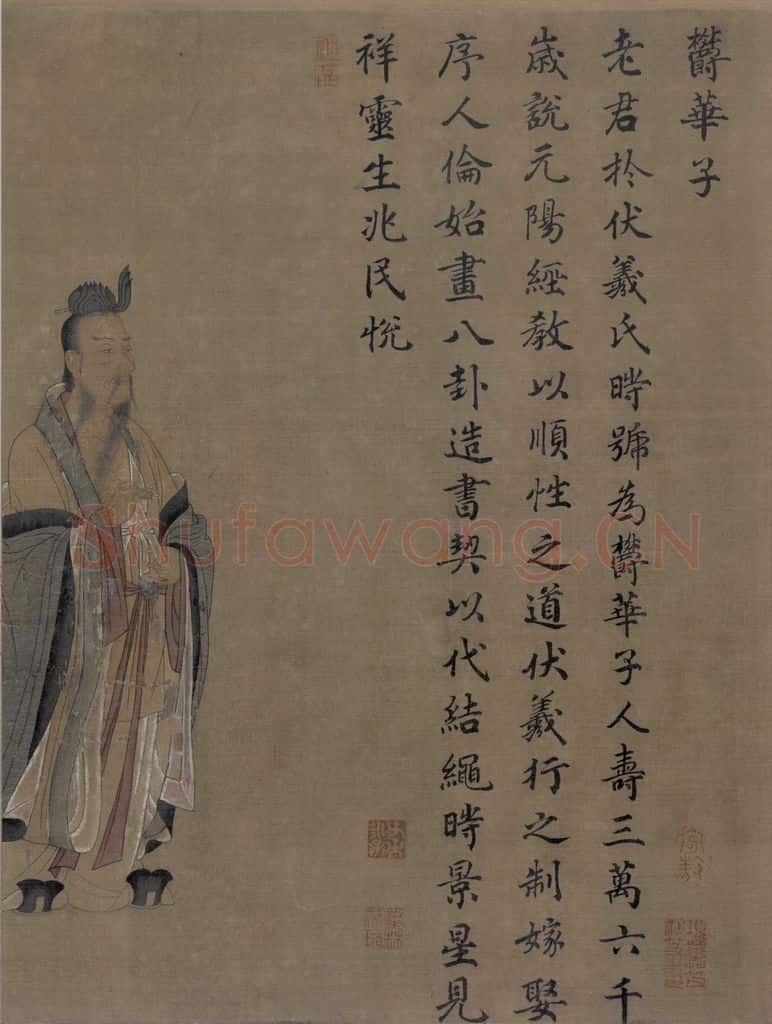 欝華子
老君扵伏羲氏時號為欝華子人壽三萬六千
歳說元陽經教以順性之道伏羲行之制嫁娶
序人倫始畫八卦造書契以代結繩時景星見
祥靈生兆民悅
Shufawang.CN